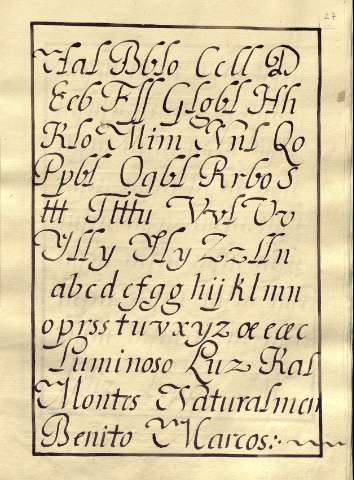 27
Bblo Ccll D
Eeb Fff Glogbl Hh
Klo Mim Nnl Qo
Ppbl Ogbl Rrbo S
ttt Tltttu Vvl Uv
Ylly Yly Zzlln
abcd efgg hij klmn
oprsstuvxyz œ eæc
Luminoso Luz Kal
Montes Naturalmen
Benito Marcos: